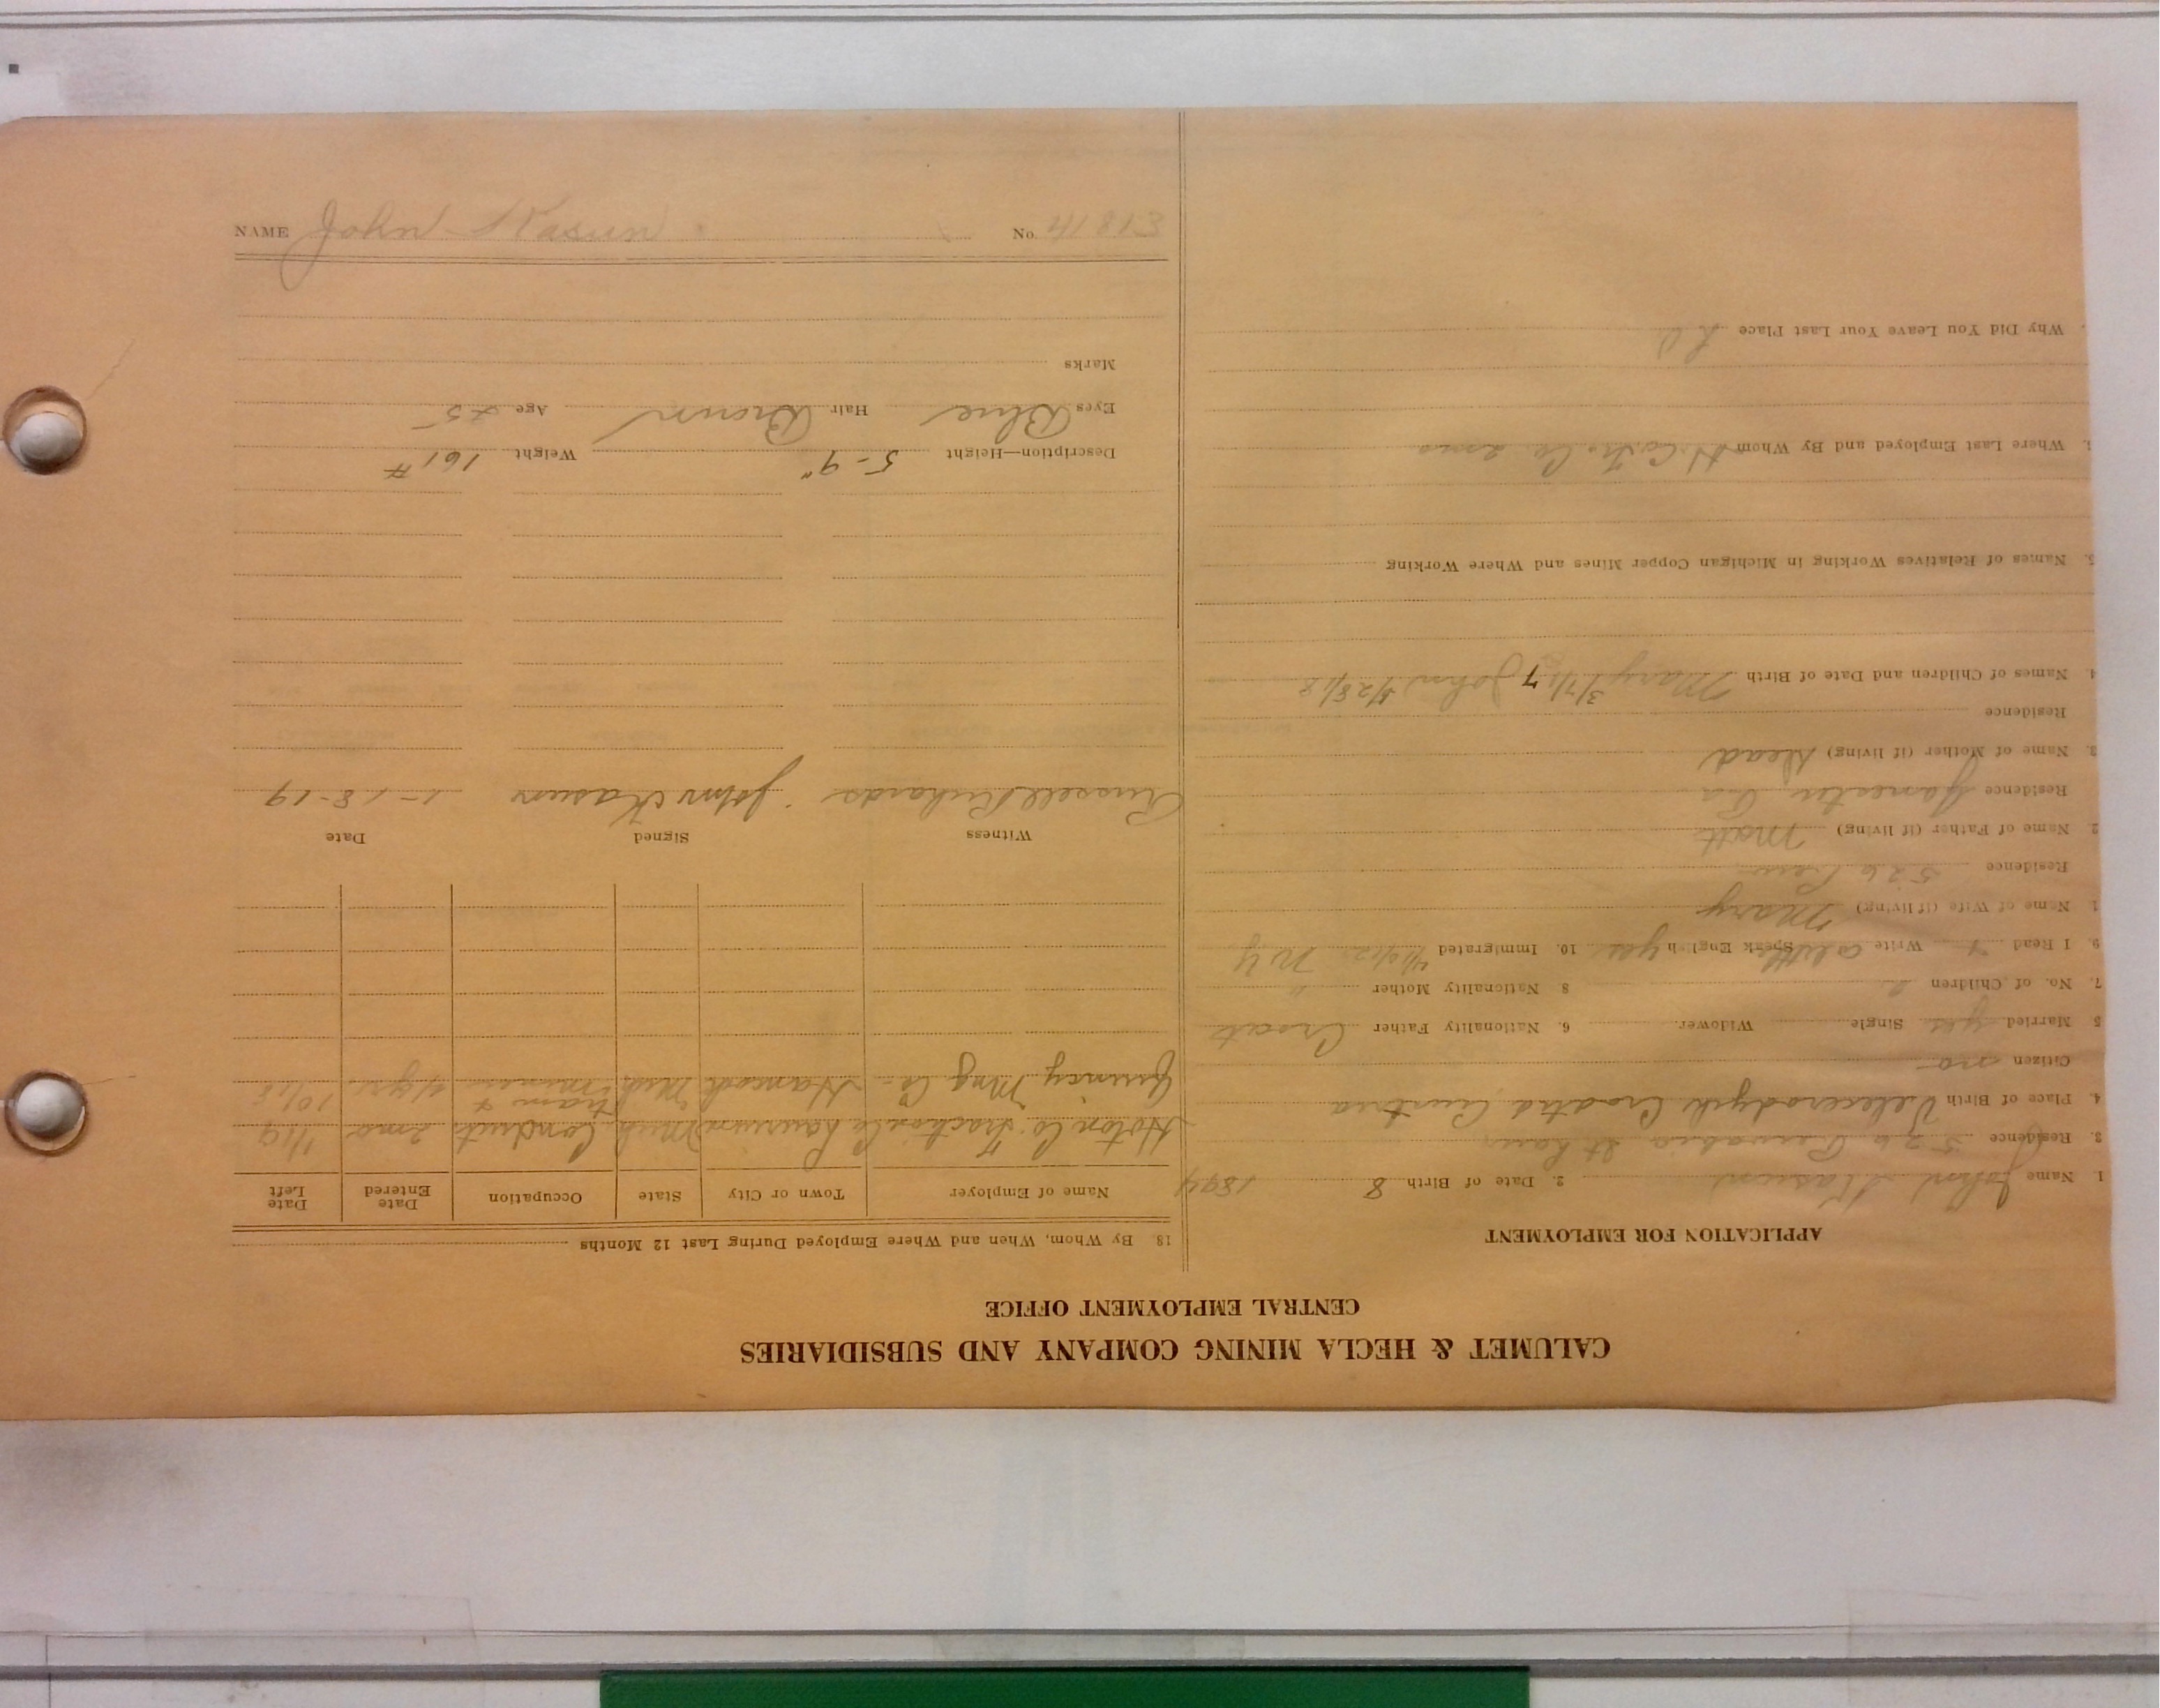 CALUMET & HECLA MINING COMPANY AND SUBSIDIARIES
CENTRAL EMPLOYMENT OFFICE
APPLICATION FOR EMPLOYMENT
1. Name John Kasun 2. Date of Birth 8 1894
3. Residence 526
4. Place of Birth Croatia Austria
Citizen no
5 Married yes Single Widower 6. Nationality Father Croat
7. No. of Children 2 8 Nationality Mother "
9. I Read Write Speak English yes 10. Immigrated N Y
1. Name of Wife (if living) Mary
Residence 526
2. Name of Father (if living) Matt
Residence
3. Name of Mother (if living) dead
Residence
4. Names of Children and Date of Birth Mary 3/7/17 John 4/28/18
5. Names of Relatives Working in Michigan Copper Mines and Where Working
1. Where Last Employed and By Whom
Why Did You Leave Your Last Place
18. By Whom, When and Where Employed During Last 12 Months
Name of Employer Town or City State Occupation Date Entered Date Left
Hoton Co. Traction Co Laurium Mich Conduct 2 mo 1/19
Quincy Mng Co. Hancock Mich tram & miner 4 yrs. 10/18
Witness Signed Date
Russell Richards John Kasun 1-18-19
Description—Height 5-9" Weight 161 #
Eyes Blue Hair Brown Age 25
Marks
NAME John Kasun No. 41813